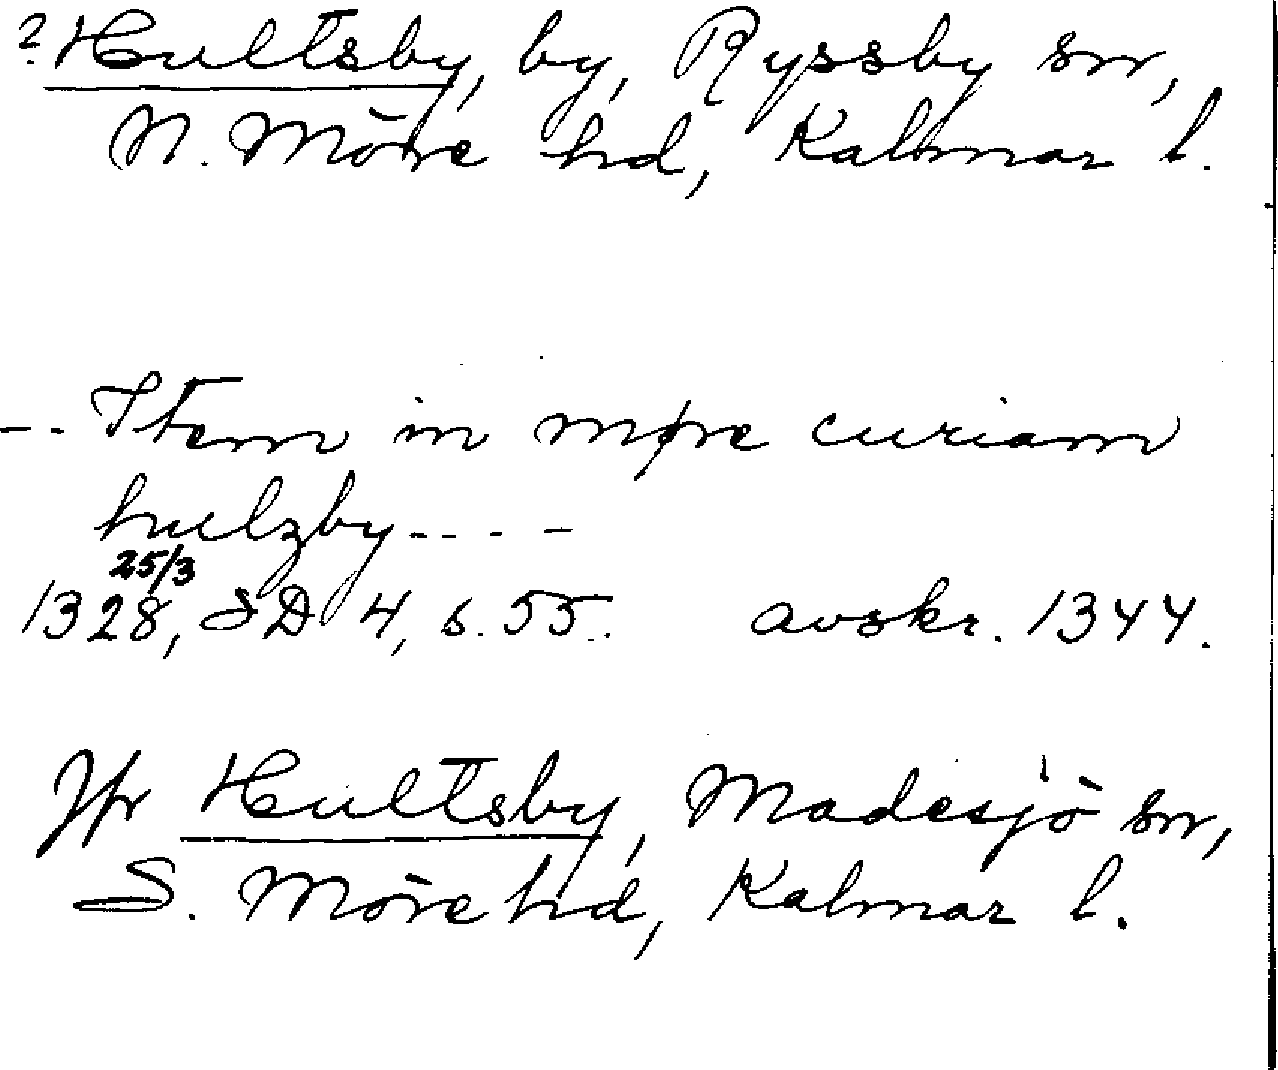 ? Hultsby, by, Ryssby sn,
N. Möre hd, Kalmar l.
-- Item in møre curiam
hulzby----
25/3
1328, SD 4, s. 55. avskr. 1344.
Jfr Hultsby, Madesjö sn,
S. Möre hd, Kalmar l.